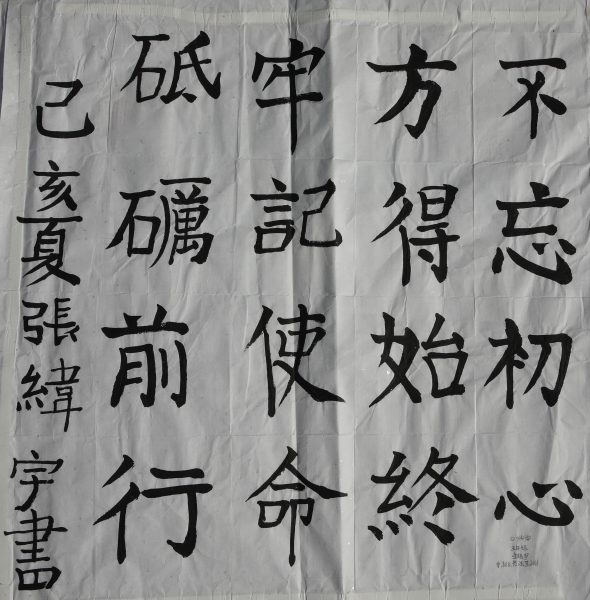 不忘初心
方得始終
牢記使命
砥礪前行
己亥夏張緯宇書